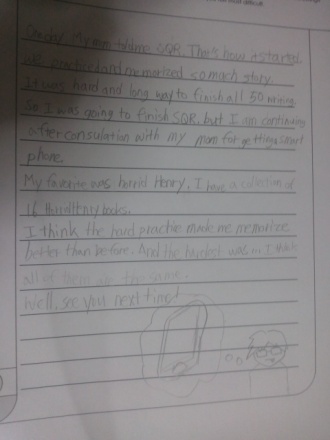 One day My mom told me SQR. That's how it started.
We practiced and memorized so much story.
It was hard and long way to finish all 50 writing.
So I was going to finish SQR, but I am continuing
after consulation with my mom for getting a smart
phone.
My favorite was horrid Henry. I have a collection of
16 Horrid Henry books.
I think the hard practice made me memorize
better than before. And the hardest was... I think
all of them are the same.
Well, see you next time!